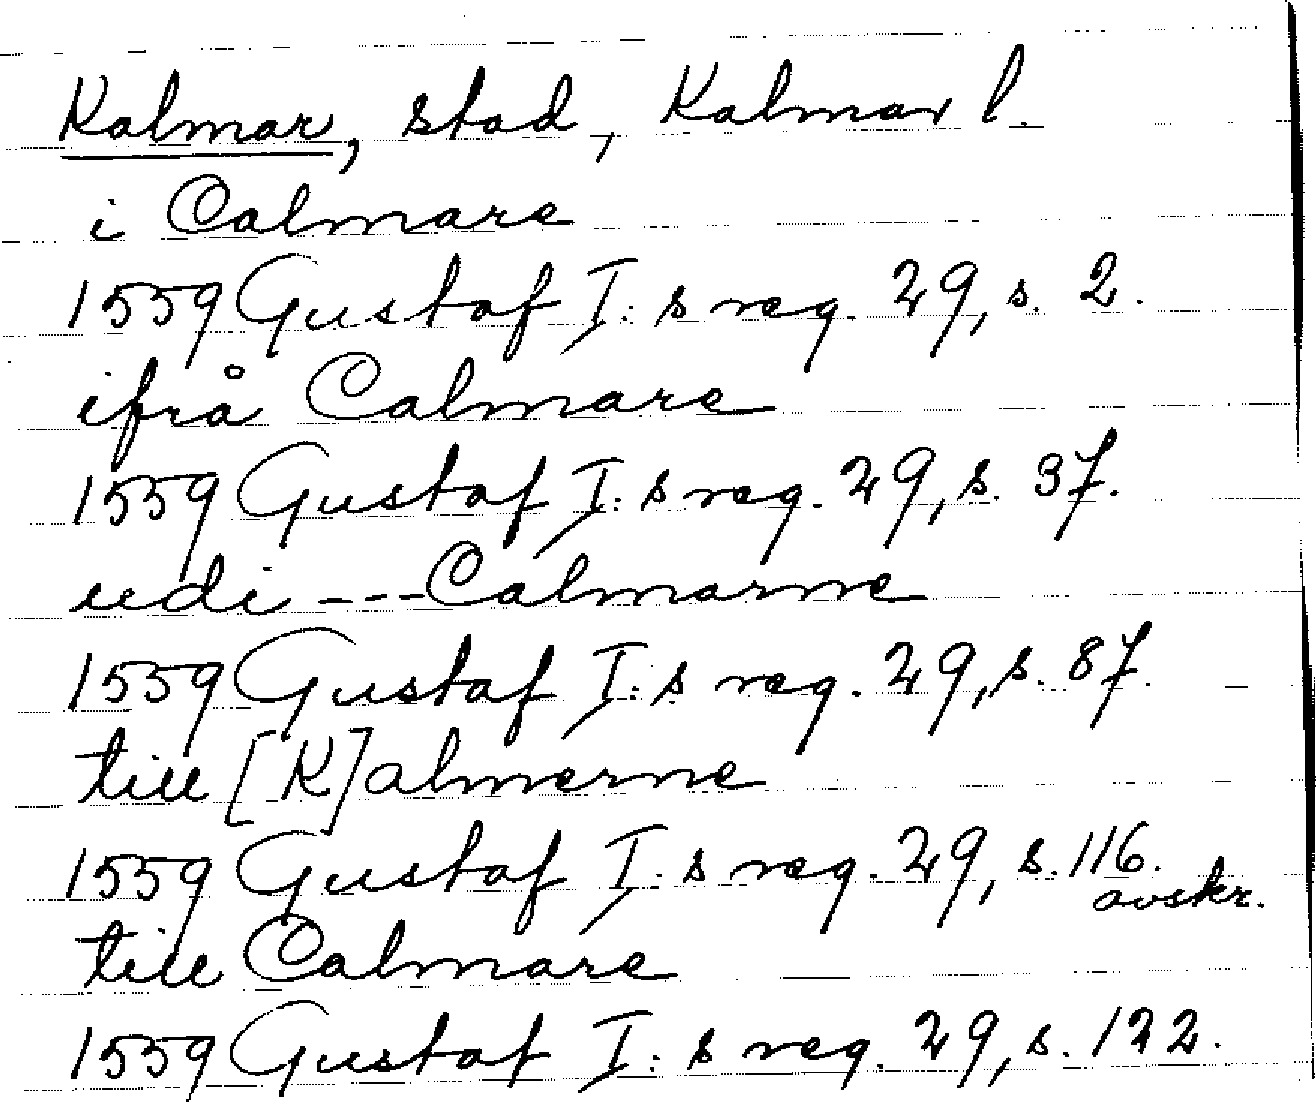 Kalmar, stad, Kalmar l.
i Calmare
1559 Gustaf I:s reg. 29, s. 2.
ifrå Calmare
1559 Gustaf I:s reg. 29, s. 37.
udi --- Calmarne
1559 Gustaf I:s reg. 29, s. 87.
till [K]almerne
1559 Gustaf I:s reg. 29, s. 116.
avskr.
till Calmare
1559 Gustaf I:s reg. 29, s. 122.